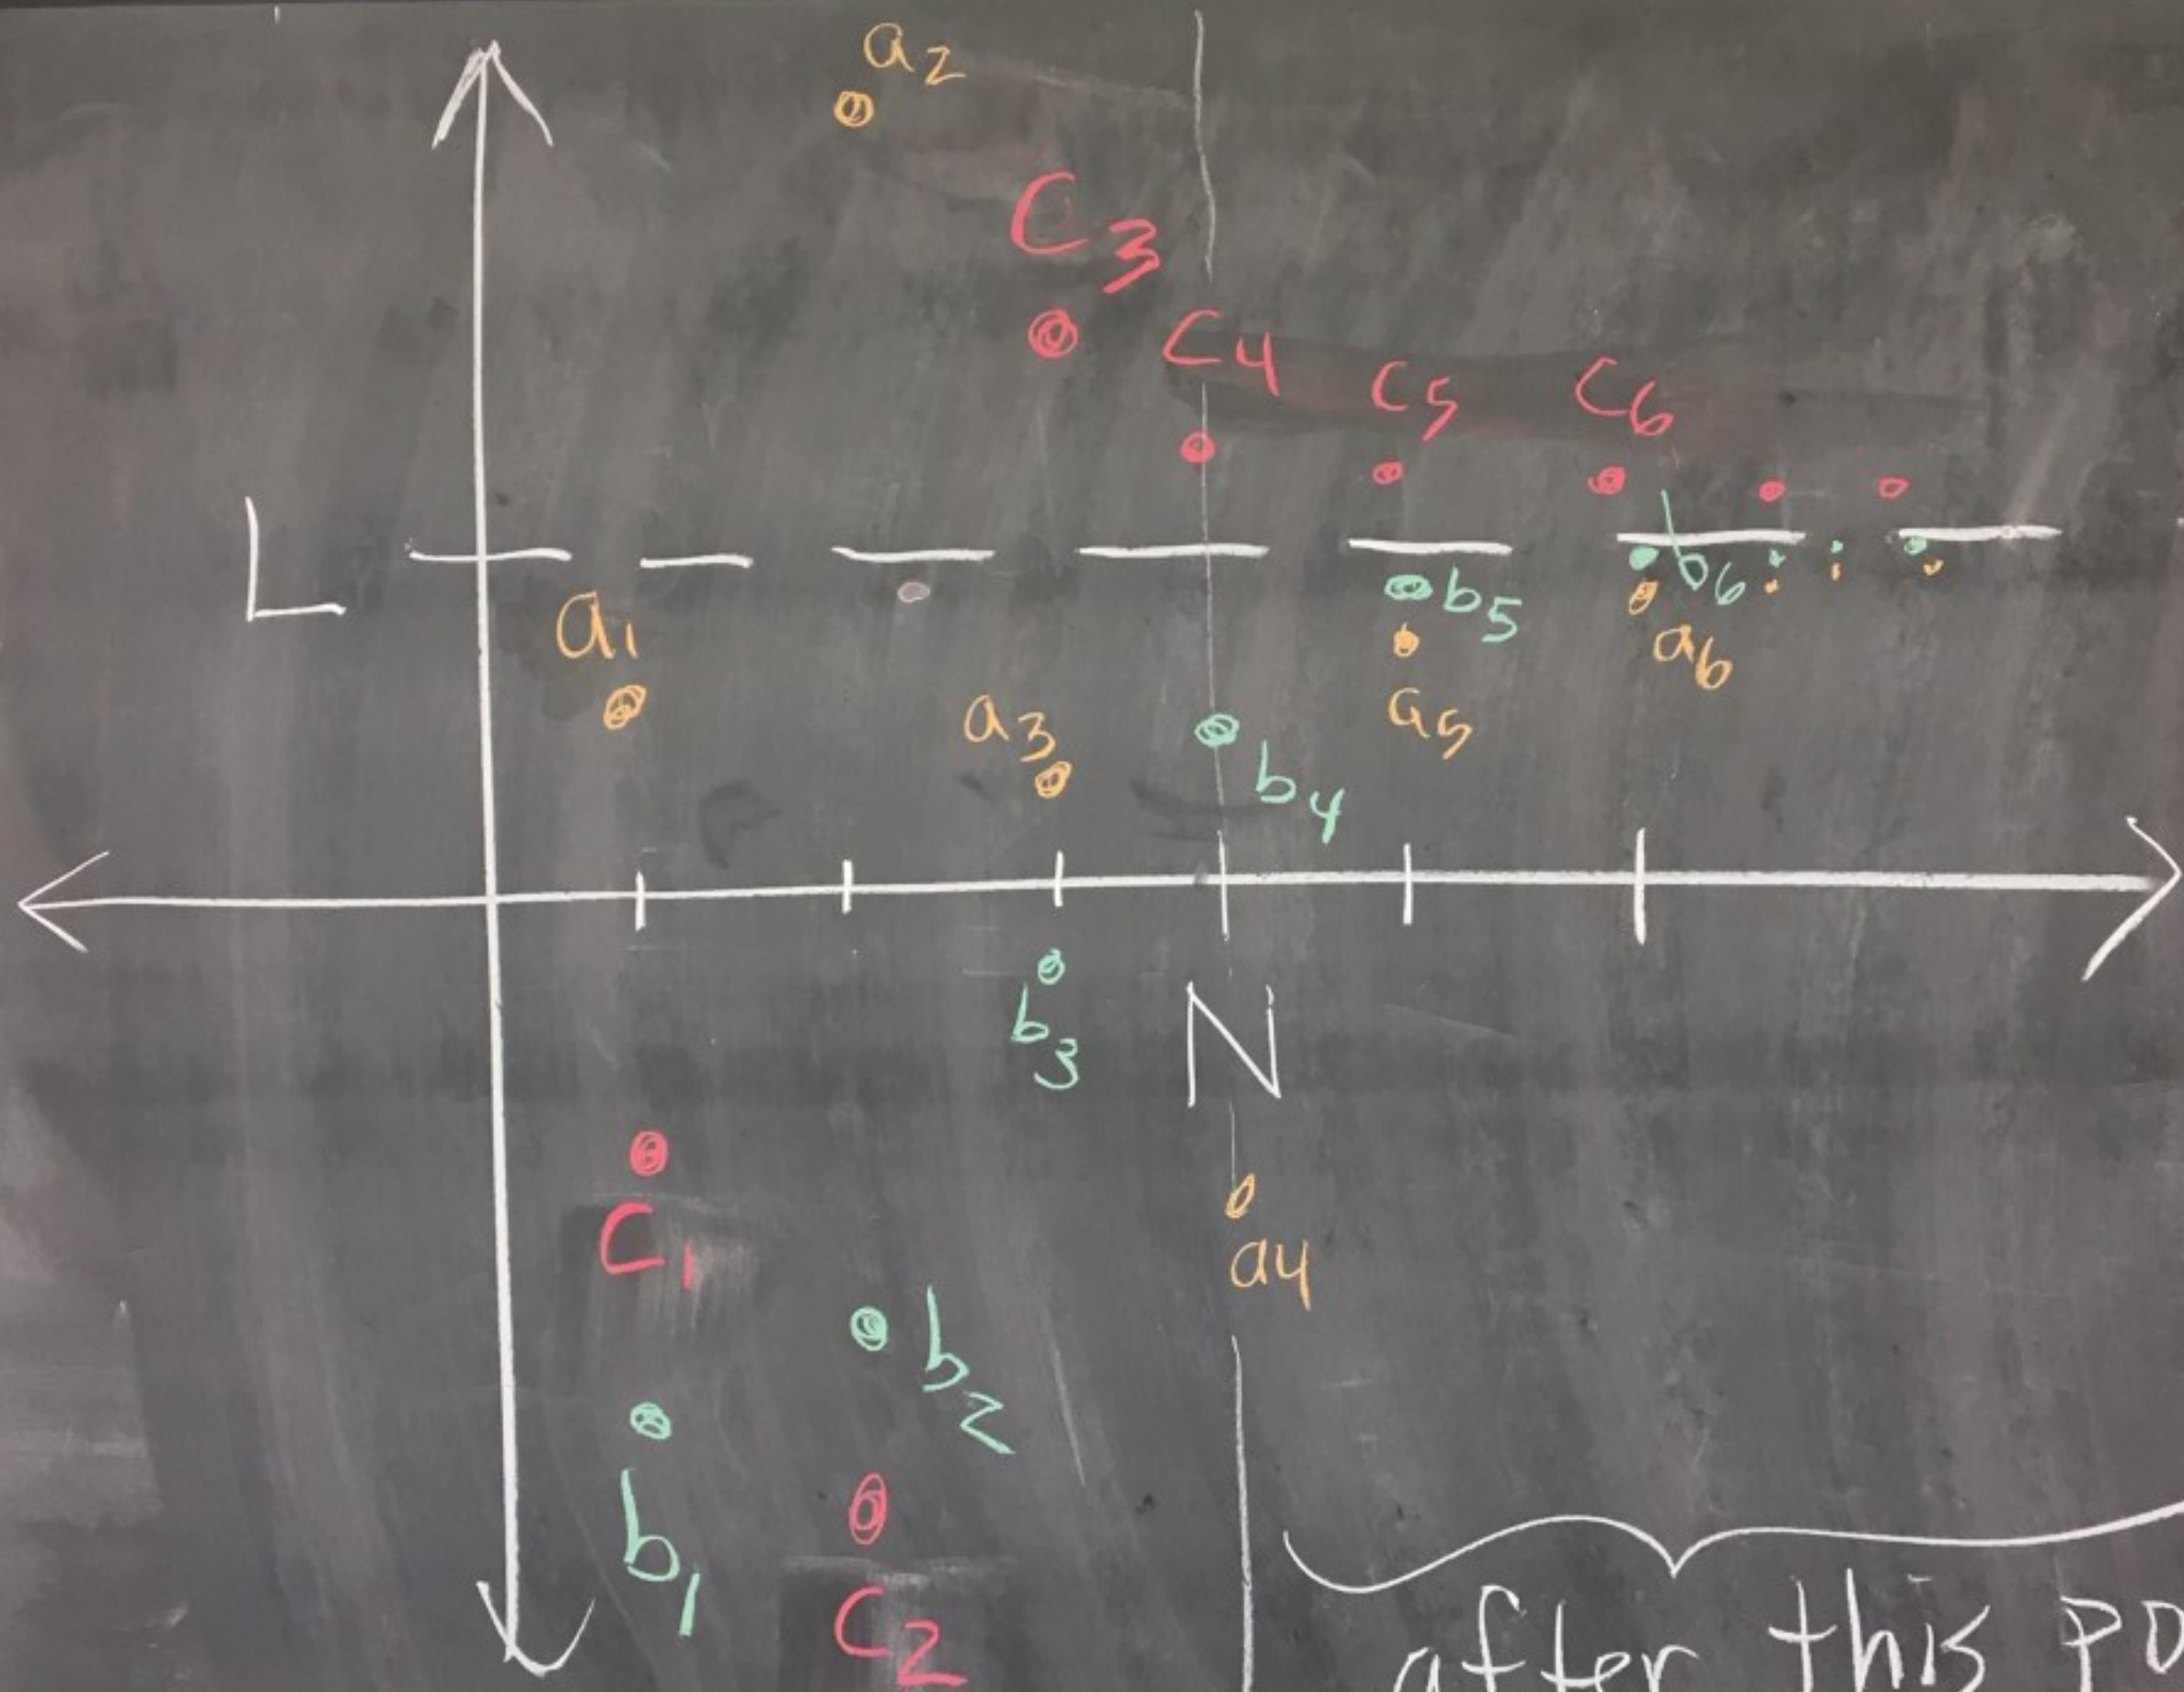 a2
C3
C4
C5
C6
L
a1
b5
b6
a6
a3
a5
b4
b3
N
C1
a4
b2
b1
C2
after this po